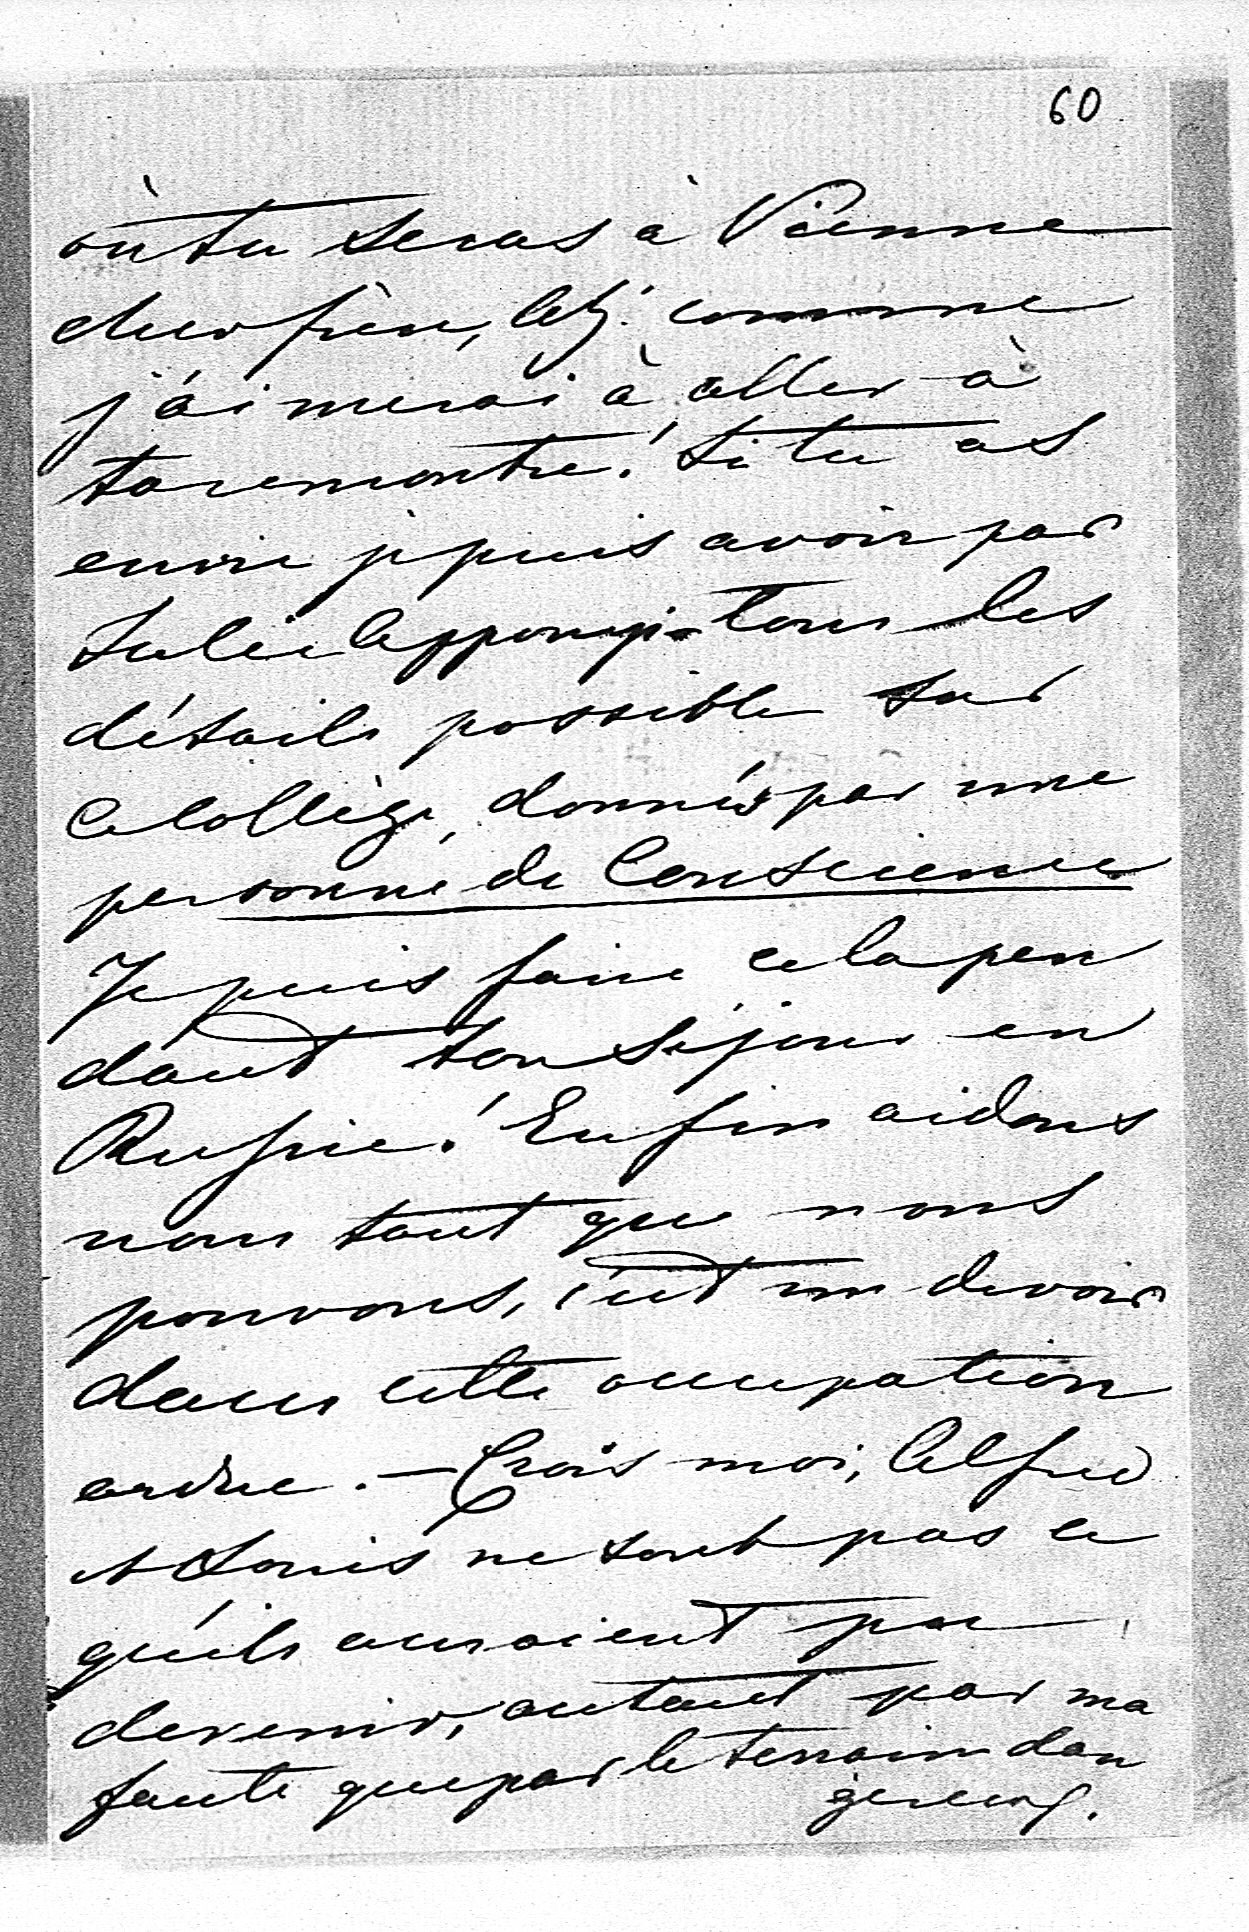 60
où tu seras à Vienne
cher frère, Ah! comme
j'aimerai à aller à
ta rencontre! Si tu as
envie je puis avoir par
Julie Apponyi tous les
détails possible sur
ce Collège, donnés par une
personne de Conscience
Je puis faire cela pen
dant ton séjour en
Russie! Enfin aidons
nous tant que nous
pouvons, c'est un devoir
dans cette occupation
ardue. – Crois moi, Alfred
et Louis ne sont pas ce
qu'ils auraient pu
devenir, autant par ma
faute que par le terrain dan
gereux.